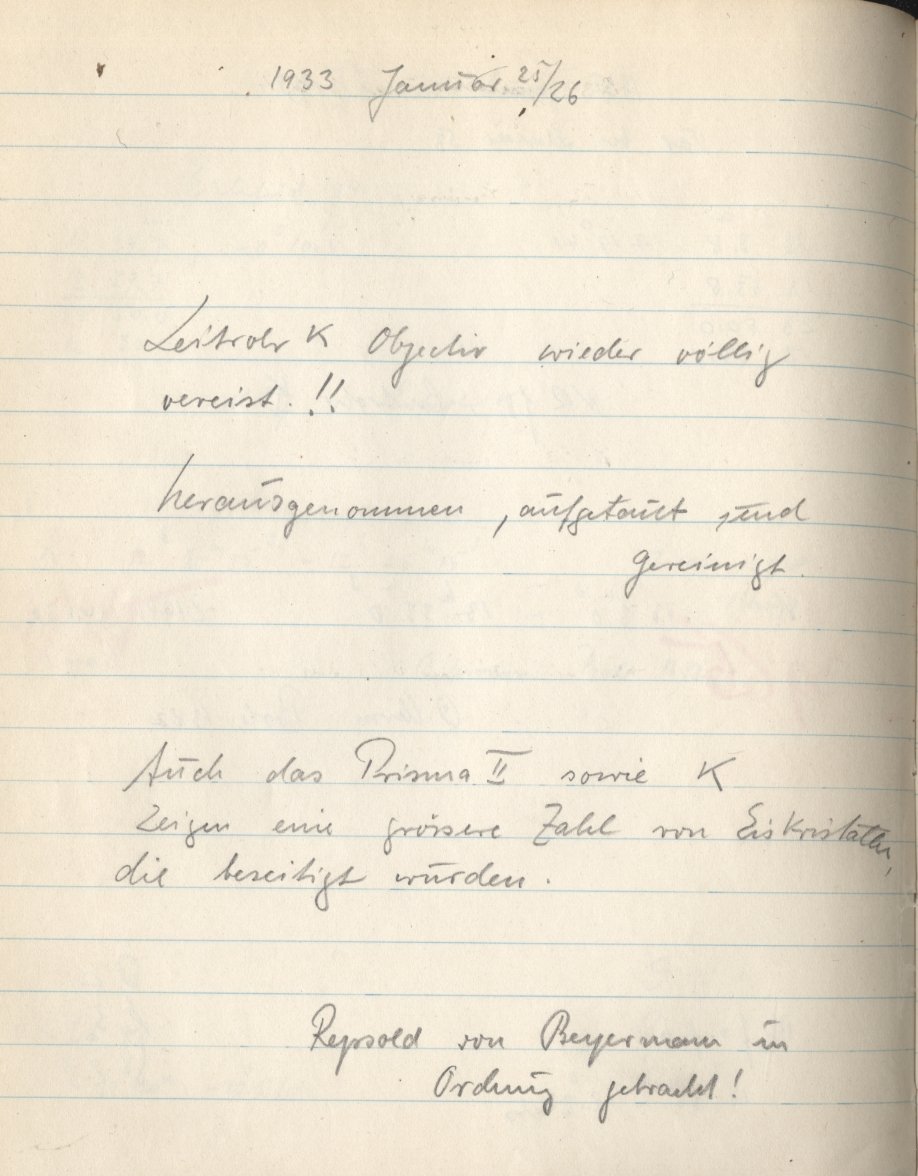 1933 Januar 25/26
Leitrohr K Objectiv wieder völlig
vereist. !!
herausgenommen, aufgetaut und
gereinigt.
Auch das Prisma II sowie K
zeigen eine grössere Zahl von Eiskristallen,
die beseitigt wurden.
Repsold von Beyermann in
Ordnung gebracht!